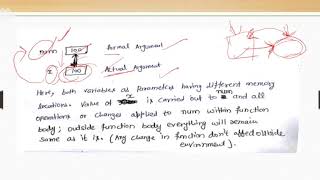 num 100 Formal Argument
x 100 Actual Argument
Here, both variables as parameters having different memory
locations. Value of x is carried out to num and all
operations or changes applied to num within function
body; outside function body everything will remain
same as it is. (Any change in function don't affect outside
environment).